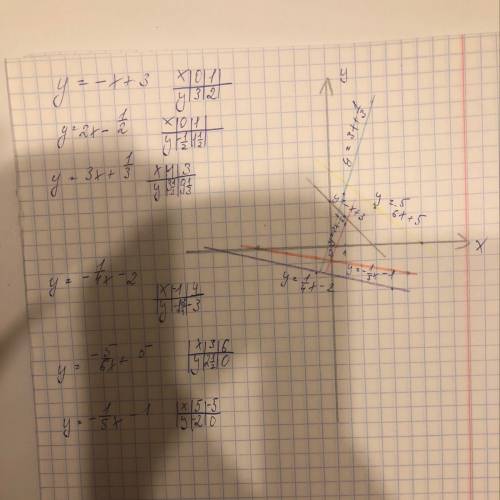 y = -x + 3
x | 0 | 1
y | 3 | 2
y = 2x - 1/2
x | 0 | 1
y | -1/2 | 1 1/2
y = 3x + 1/3
x | 1 | 3
y = -1/4x - 2
x | -1 | 4
-3
y = -5/6x + 5
x | 3 | 6
y | 2 1/2 | 0
y = -1/5x - 1
x | 5 | -5
y | -2 | 0
y
x
y = 3x + 1/3
y = -x + 3
y = -5/6x + 5
y = -1/5x - 1
y = 1/4x - 2